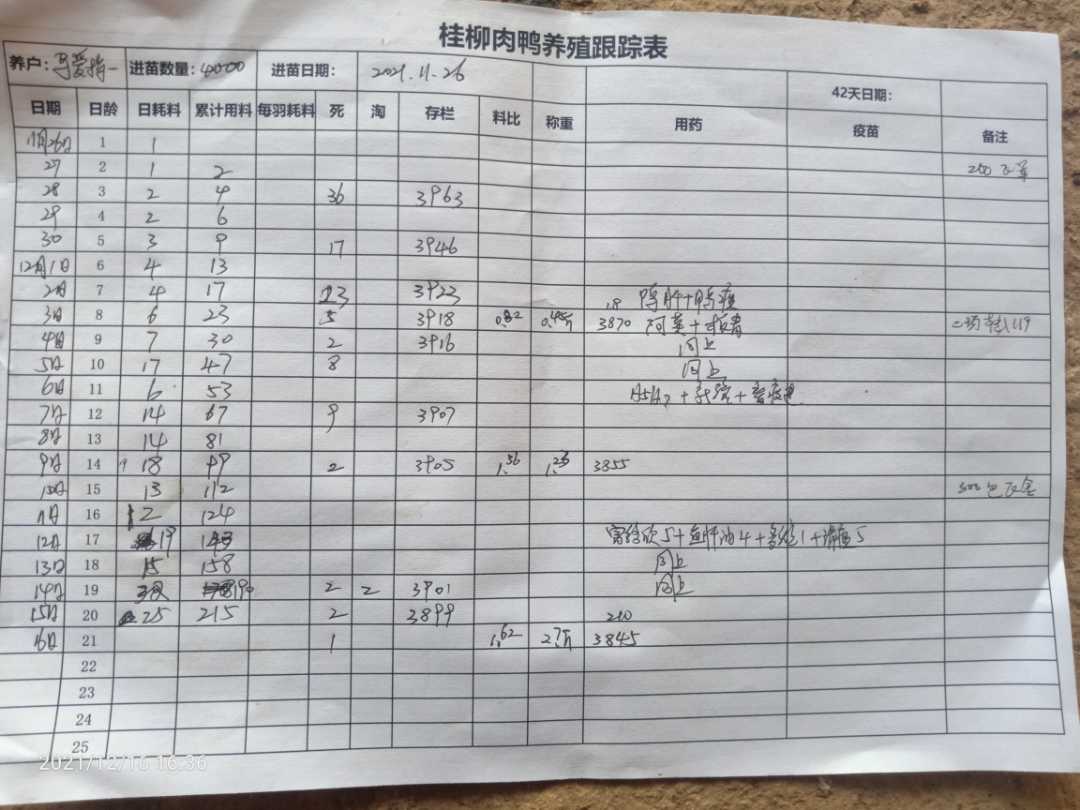 桂柳肉鸭养殖跟踪表
养户: 进苗数量: 4000 进苗日期: 2021.11.26
42天日期:
日期 日龄 日耗料 累计用料 每羽耗料 死 淘 存栏 料比 称重 用药 疫苗 备注
11月26日 1 1
27 2 1 2 200
28 3 2 4 36 3963
29 4 2 6
30 5 3 9 17 3946
12月1日 6 4 13
2日 7 4 17 23 3923 鸭肝+鸭疫
3日 8 6 23 5 3918 0.82 3870 阿莫+
4日 9 7 30 2 3916 同上
5日 10 17 47 8 同上
6日 11 6 53
7日 12 14 67 9 3907
8日 13 14 81
9日 14 18 99 2 3905 1.56 1.26 3855
10日 15 13 112
11日 16 12 124
12日 17 19 143 鱼肝油4+
13日 18 15 158 同上
14日 19 190 2 2 3901 同上
15日 20 25 215 2 3899 210
16日 21 1 1.62 2.7斤 3845
22
23
24
25
2021/12/16 16:36